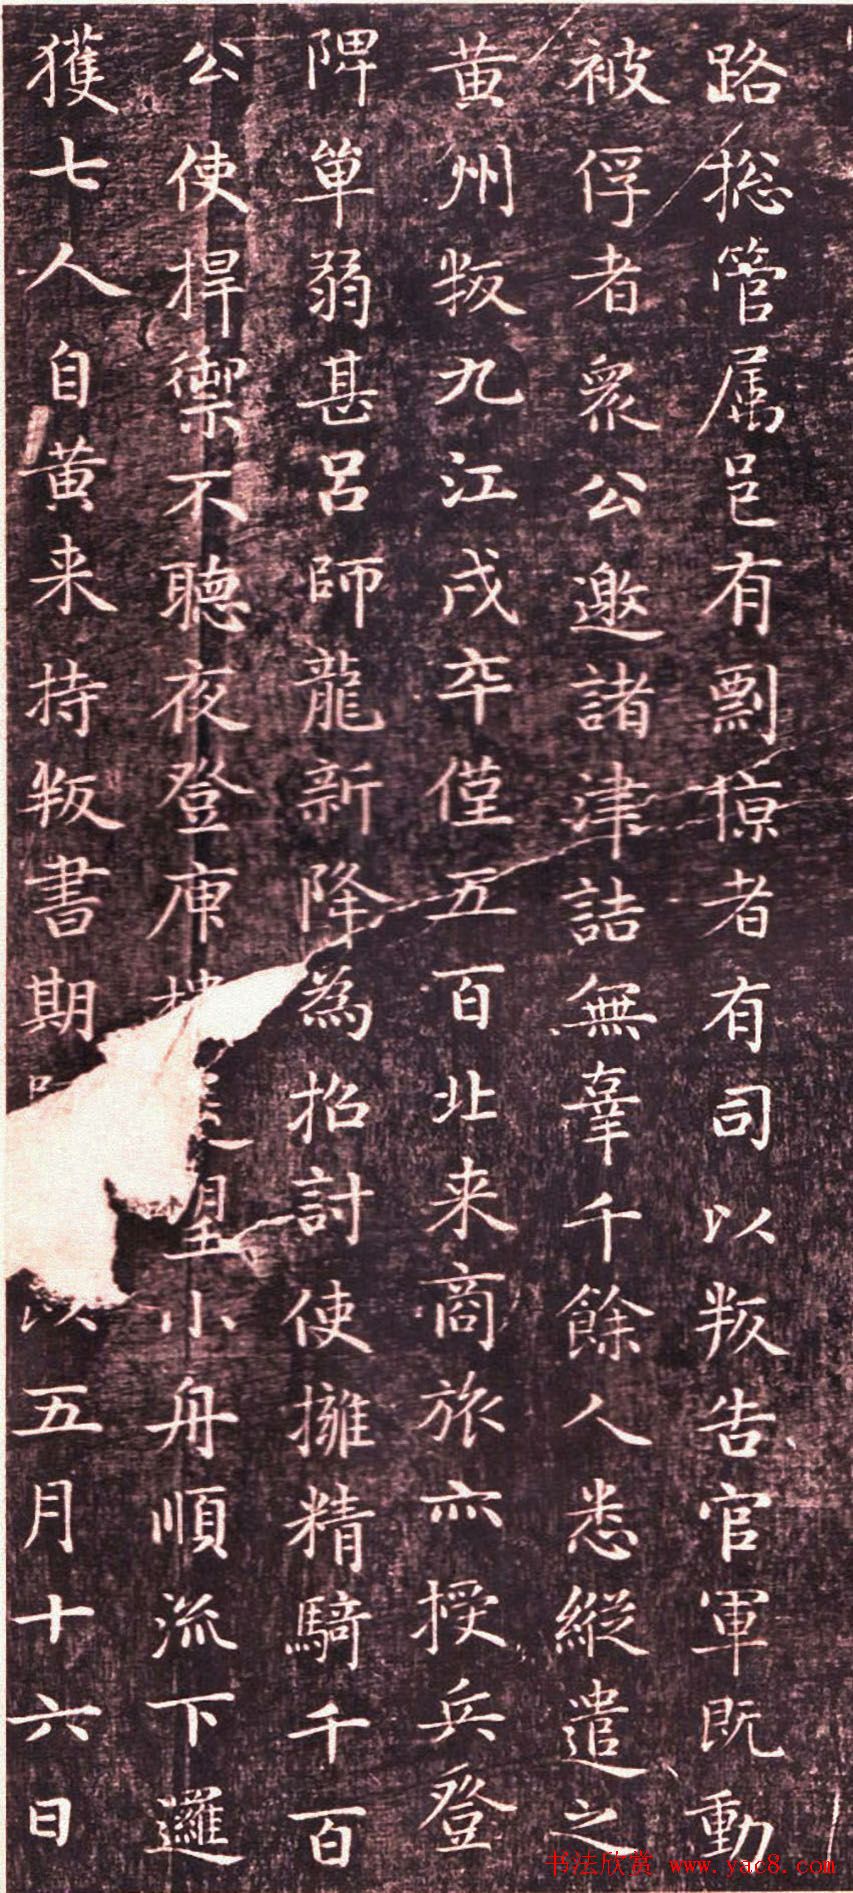 路揔管属邑有剽掠者有司以叛告官軍既動
被俘者衆公邀諸津詰無辜千餘人悉縱遣之
黄州叛九江戍卒僅五百北来商旅亦授兵登
陴單弱甚吕師龍新降為招討使擁精騎千百
公使捍禦不聽夜登庾樓望小舟順流下邏
獲七人自黄来持叛書期以五月十六日
书法欣赏 www.yac8.com